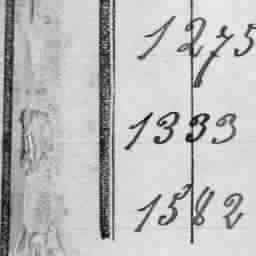 1275
1333
1582